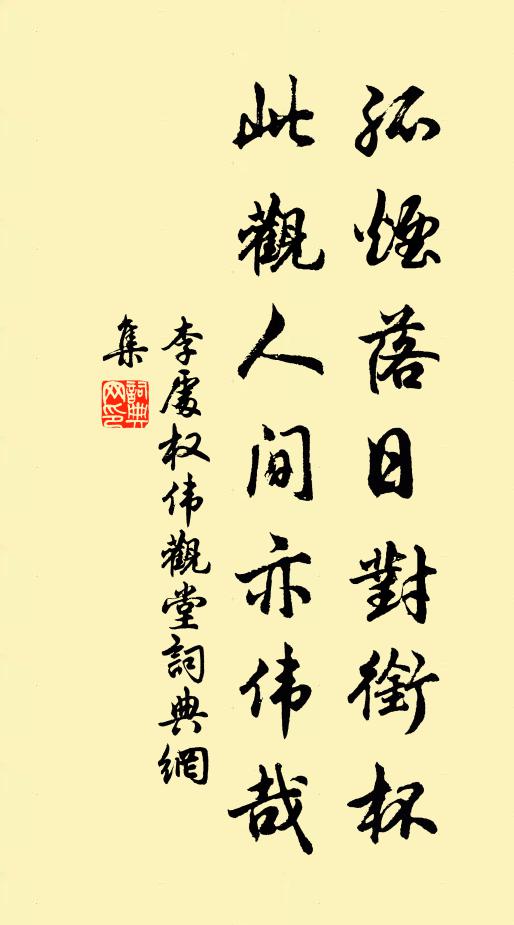 孤煙落日對銜杯
此觀人间亦伟哉
李處权伟觀堂詞典網
集
詞典网印